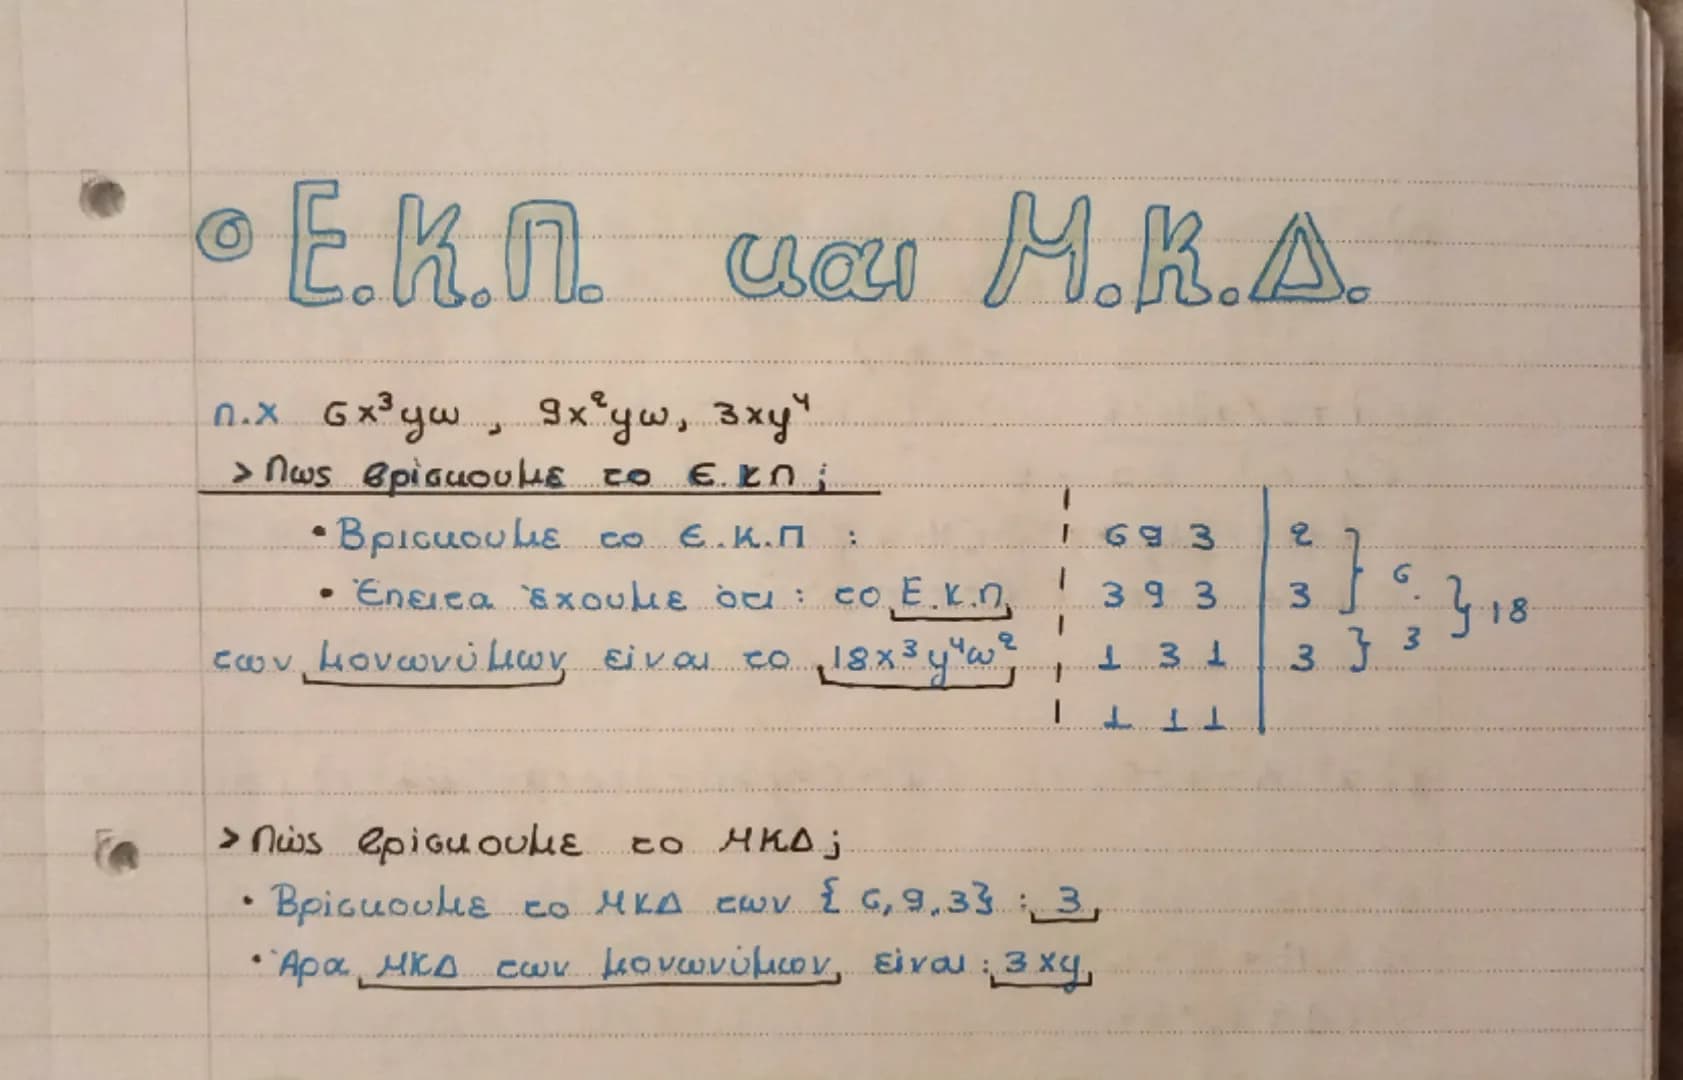 Ε.Κ.Π. και Μ.Κ.Δ.
π.χ 6x³yω, 9x²yω, 3xy⁴
> Πως βρίσκουμε το Ε.ΚΠ;
• Βρισκουμε το Ε.Κ.Π :
• Έπειτα έχουμε ότι: το Ε.Κ.Π
των μονωνύμων είναι το 18x³y⁴ω²
6 9 3 | 2
3 9 3 | 3 } 6
1 3 1 | 3 } 3 } 18
1 1 1
> Πώς βρίσκουμε το ΜΚΔ;
• Βρίσκουμε το ΜΚΔ των {6,9,3} : 3
• Άρα ΜΚΔ των μονωνύμων είναι : 3xy